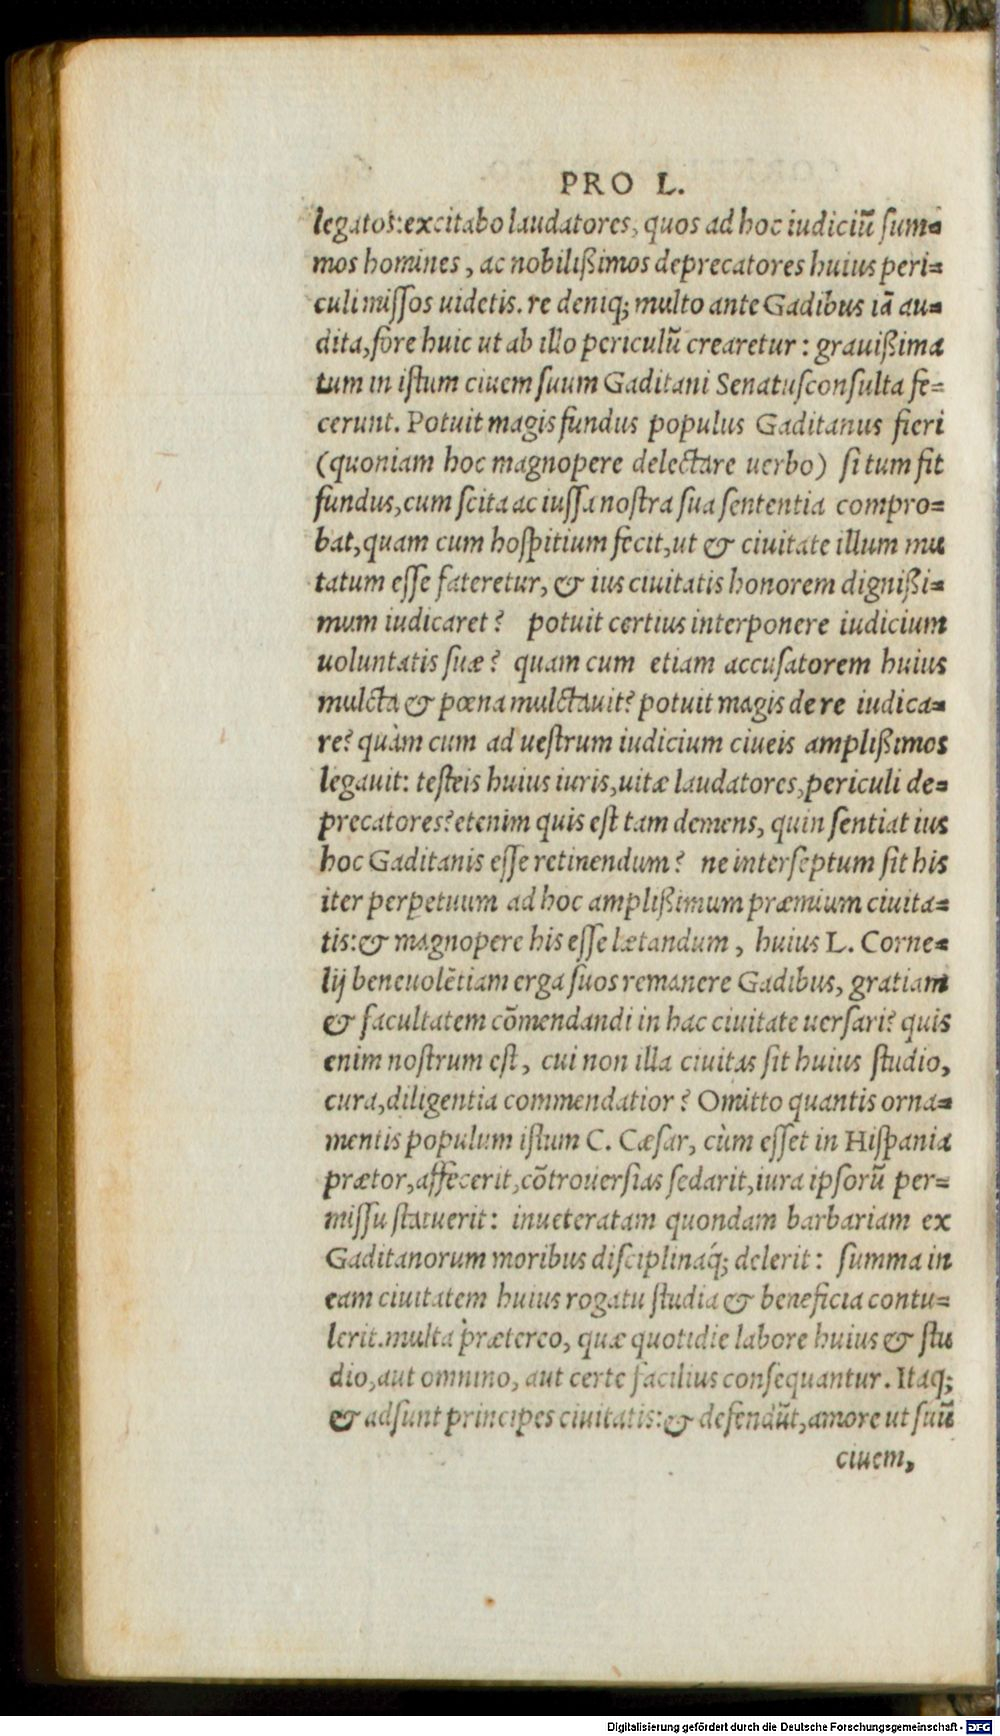 PRO L.
legatos: excitabo laudatores, quos ad hoc iudiciū ſum=
mos homines, ac nobilißimos deprecatores huius peri=
culi miſſos uidetis. re deniq; multo ante Gadibus iā au=
dita, fore huic ut ab illo periculū crearetur: grauißima
tum in iſtum ciuem ſuum Gaditani Senatuſconſulta fe=
cerunt. Potuit magis fundus populus Gaditanus fieri
(quoniam hoc magnopere delectare uerbo) ſi tum fit
fundus, cum ſcita ac iuſſa noſtra ſua ſententia compro=
bat, quam cum hoſpitium fecit, ut & ciuitate illum mu
tatum eſſe fateretur, & ius ciuitatis honorem dignißi=
mum iudicaret? potuit certius interponere iudicium
uoluntatis ſuæ? quam cum etiam accuſatorem huius
mulcta & pœna mulctauit? potuit magis de re iudica=
re? quàm cum ad ueſtrum iudicium ciueis amplißimos
legauit: teſteis huius iuris, uitæ laudatores, periculi de=
precatores? etenim quis eſt tam demens, quin ſentiat ius
hoc Gaditanis eſſe retinendum? ne interſeptum ſit his
iter perpetuum ad hoc amplißimum præmium ciuita=
tis: & magnopere his eſſe lætandum, huius L. Corne=
lij beneuolētiam erga ſuos remanere Gadibus, gratiam
& facultatem cōmendandi in hac ciuitate uerſari? quis
enim noſtrum eſt, cui non illa ciuitas ſit huius ſtudio,
cura, diligentia commendatior? Omitto quantis orna=
mentis populum iſtum C. Cæſar, cùm eſſet in Hiſpania
prætor, affecerit, cōtrouerſias ſedarit, iura ipſorū per=
miſſu ſtatuerit: inueteratam quondam barbariam ex
Gaditanorum moribus diſciplináq; delerit: ſumma in
eam ciuitatem huius rogatu ſtudia & beneficia contu=
lerit. multa prætereo, quæ quotidie labore huius & ſtu
dio, aut omnino, aut certe facilius conſequantur. Itaq;
& adſunt principes ciuitatis: & defendūt, amore ut ſuū
ciuem,
Digitalisierung gefördert durch die Deutsche Forschungsgemeinschaft - DFG